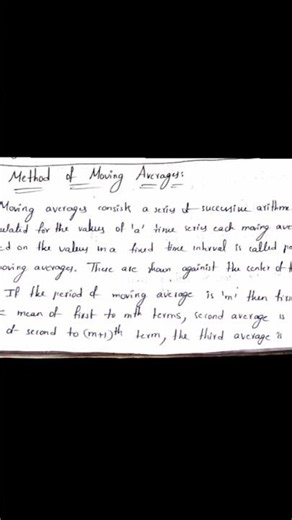 Method of Moving Averages:
Moving averages consists a series of successive arithme
ulated for the values of 'a' time series each moving ave
ed on the values in a fixed time interval is called pe
oving averages. These are shown against the center of t
If the period of moving average is 'm' then firs
mean of first to mth terms, second average is
of second to (m+1)th term, the third average is